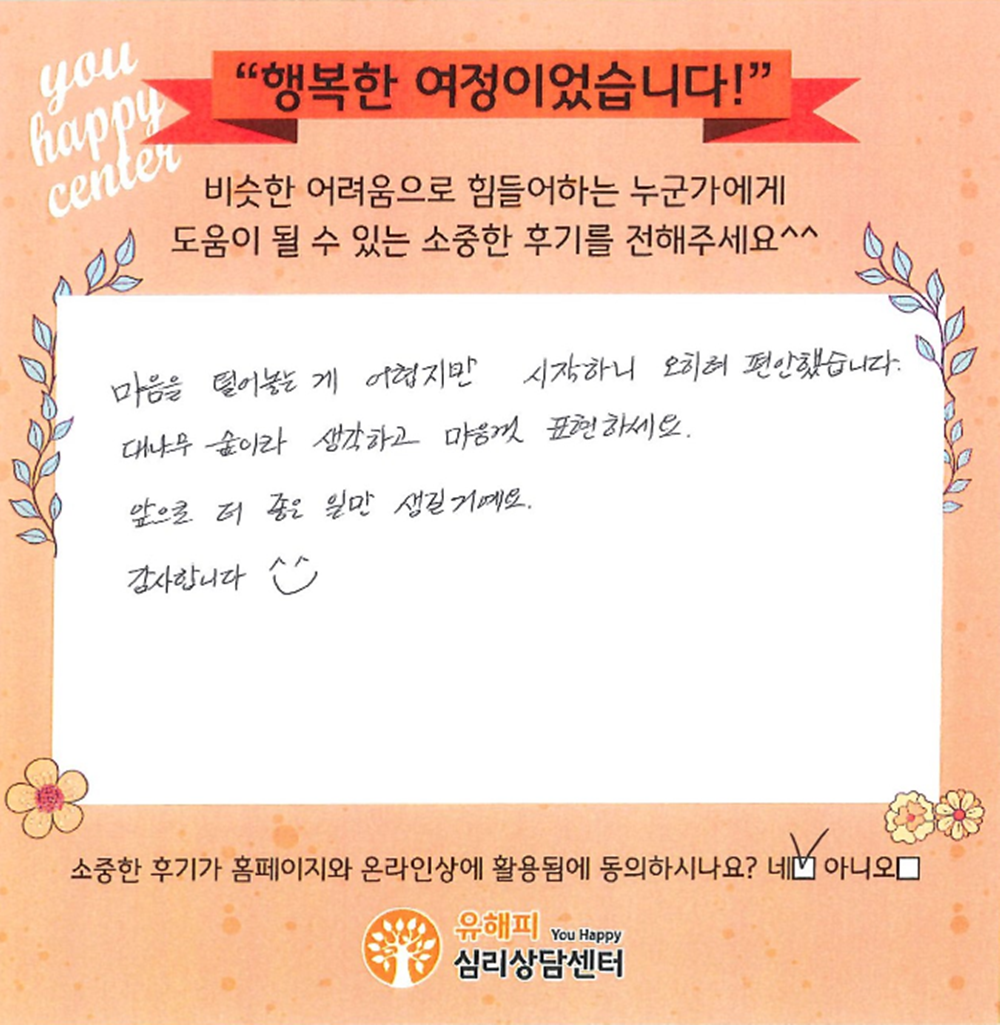 you
happy
center
“행복한 여정이었습니다!”
비슷한 어려움으로 힘들어하는 누군가에게
도움이 될 수 있는 소중한 후기를 전해주세요^^
마음을 털어놓는 게 어렵지만 시작하니 오히려 편안했습니다.
대나무 숲이라 생각하고 마음껏 표현하세요.
앞으로 더 좋은 일만 생길거예요.
감사합니다 ^^
소중한 후기가 홈페이지와 온라인상에 활용됨에 동의하시나요? 네☑ 아니오☐
유해피 You Happy
심리상담센터